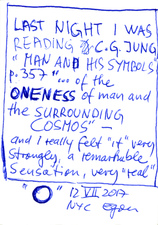 LAST NIGHT I WAS
READING C.G. JUNG
"MAN AND HIS SYMBOLS"
p. 357 "... of the
ONENESS of man and
the SURROUNDING
COSMOS" —
and I really felt "it" very
strongly, a remarkable
sensation, very "real"
"O" 12 VII 2017
NYC